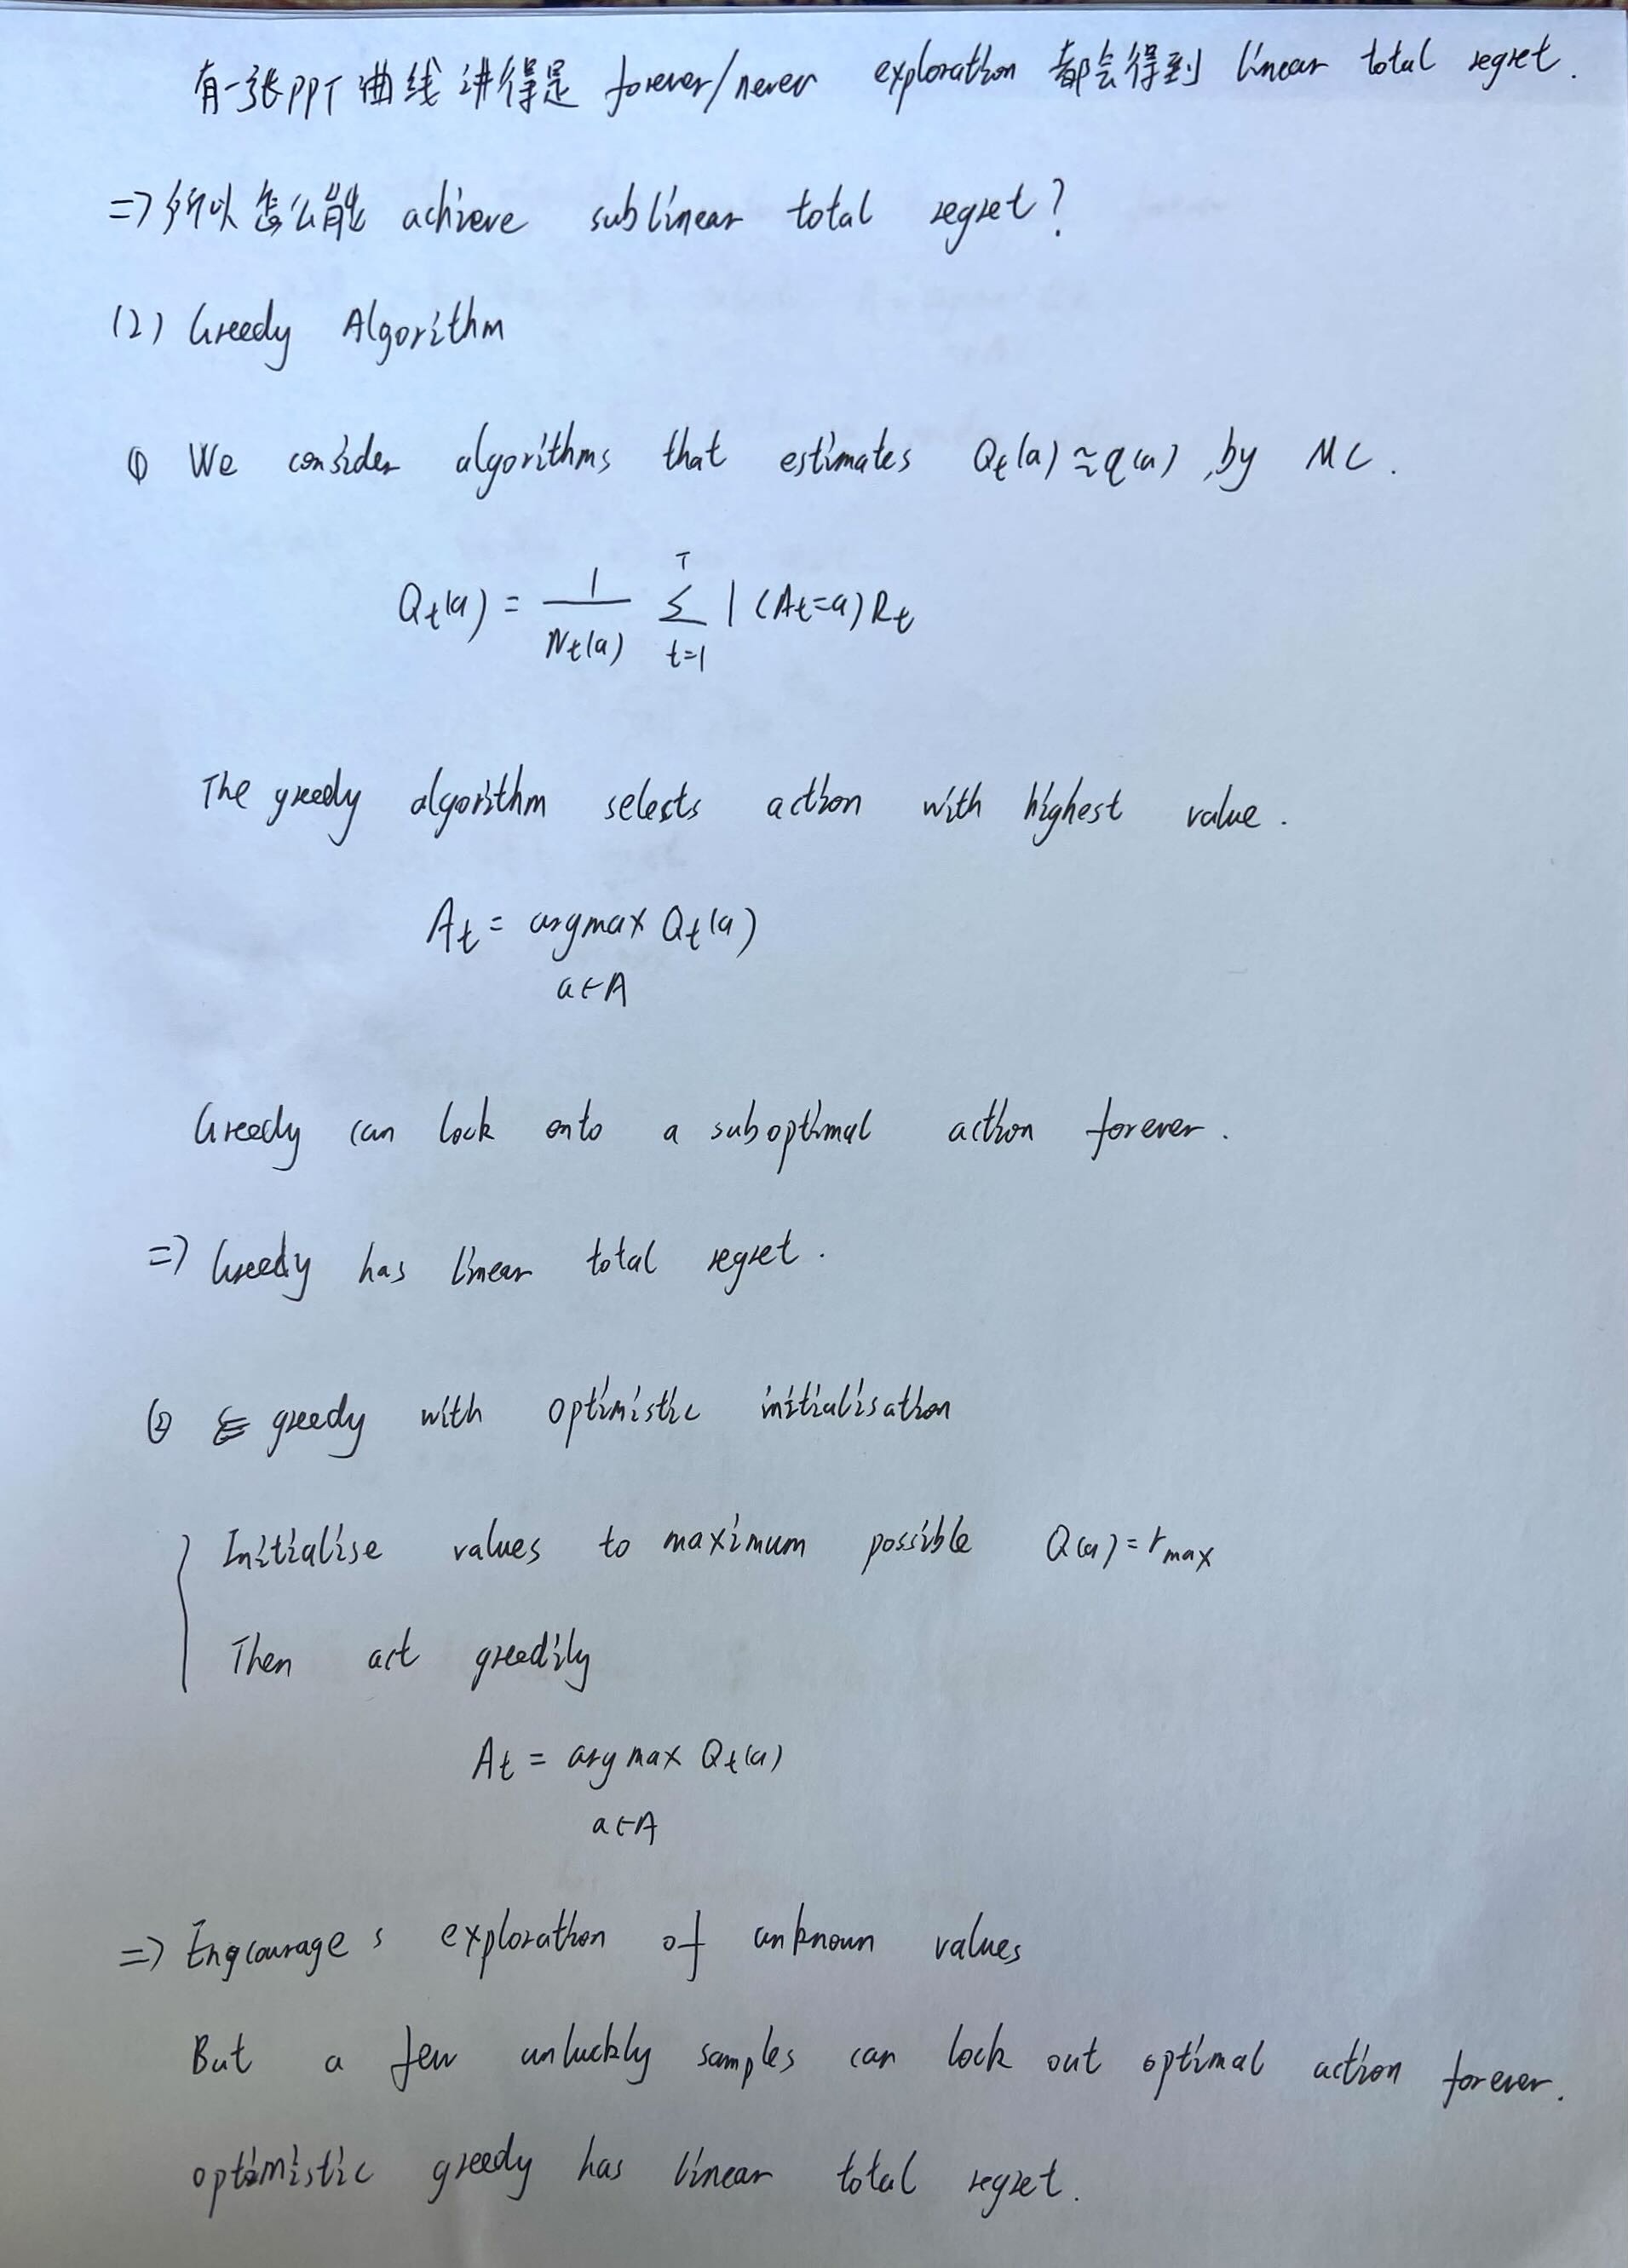 有一张PPT曲线讲得是 forever/never exploration 都会得到 linear total regret.
=> 所以怎么能 achieve sublinear total regret?
(2) Greedy Algorithm
① We consider algorithms that estimates Qt(a) ≈ q(a), by MC.
Qt(a) = 1/Nt(a) Σ_{t=1}^{T} 1(At=a)Rt
The greedy algorithm selects action with highest value.
At = argmax Qt(a)
a∈A
Greedy can lock onto a suboptimal action forever.
=> Greedy has linear total regret.
② greedy with optimistic initialisation
Initialise values to maximum possible Q(a) = rmax
Then act greedily
At = argmax Qt(a)
a∈A
=> Engcourages exploration of unknown values
But a few unluckly samples can lock out optimal action forever.
optimistic greedy has linear total regret.